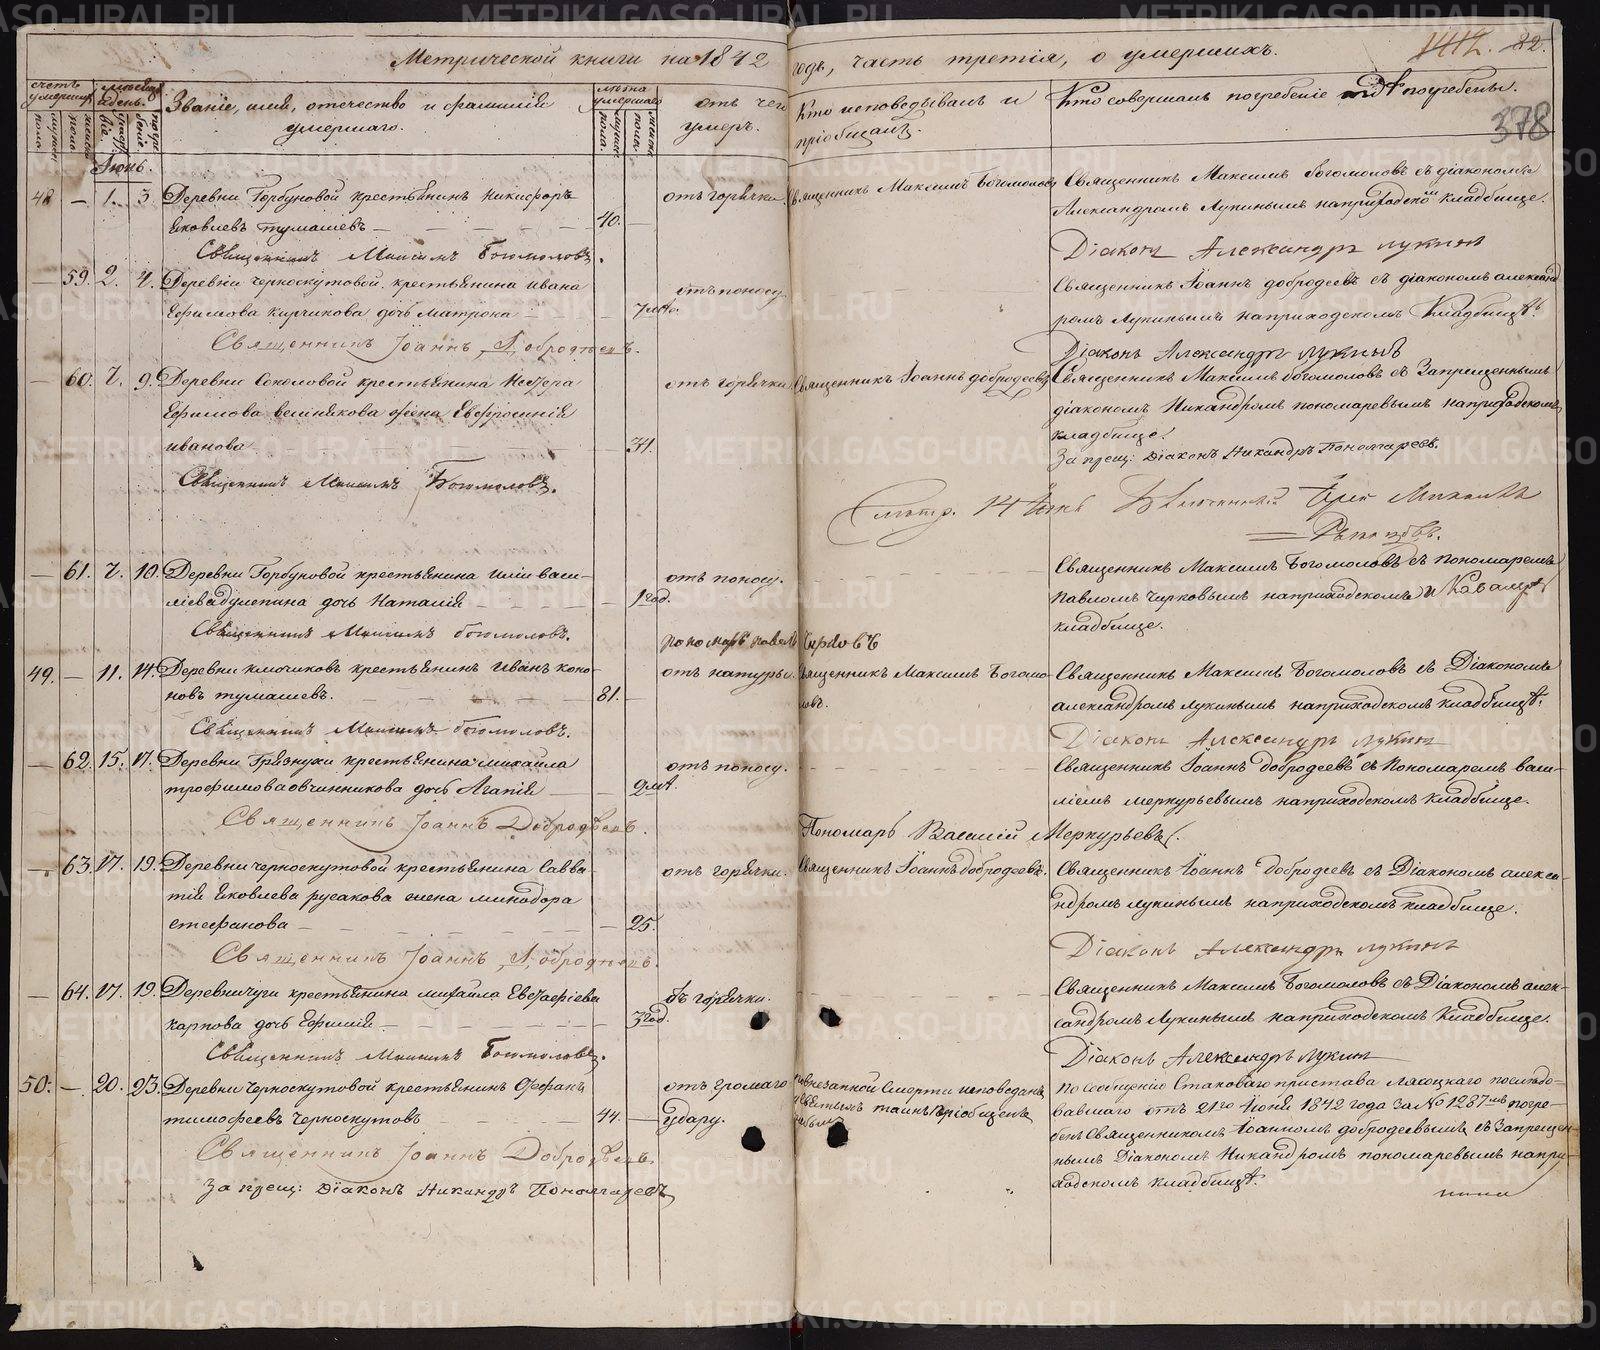 Метрической книги на 1842 годъ, часть третія, о умершихъ.
378
счетъ умершихъ
мѣсяцъ день.
Званіе, имя, отечество и фамилія
умершаго.
лѣта умершаго
отъ чего
умеръ.
Кто исповѣдывалъ и
пріобщалъ.
Кто совершалъ погребеніе и гдѣ погребены.
Іюнь.
48 — 1. 3. Деревни Горбуновой крестьянинъ Никифоръ
Яковлевъ тумашевъ — 40. —
отъ горячки.
Священникъ Максимъ Богомоловъ
Священникъ Максимъ Богомоловъ съ діакономъ
Александромъ Лукинымъ на приходскомъ кладбищѣ.
Священникъ Максимъ Богомоловъ.
Діаконъ Александръ Лукинъ
— 59. 2. 4. Деревни Черноскутовой крестьянина Ивана
Ефимова Кирчикова дочь Матрона — 7
отъ поносу
Священникъ Іоаннъ Добродеевъ съ діакономъ Александ
ромъ Лукинымъ на приходскомъ Кладбищѣ.
Священникъ Іоаннъ Добродѣевъ.
Діаконъ Александръ Лукинъ
— 60. 7. 9. Деревни Соколовой крестьянина Нестера
Ефимова жена Евфросинія
иванова — 31.
отъ горячки
Священникъ Іоаннъ Добродеевъ
Священникъ Максимъ Богомоловъ съ Запрещеннымъ
діакономъ Никандромъ пономаревымъ на приходскомъ
кладбище.
Запрещ: Діаконъ Никандръ Пономаревъ.
Священникъ Максимъ Богомоловъ.
— 61. 7. 10. Деревни Горбуновой крестьянина Иліи васи-
дочь Наталія — 1 год.
отъ поносу.
Священникъ Максимъ Богомоловъ съ Пономаремъ
Павломъ Чирковымъ на приходскомъ
кладбище.
Священникъ Максимъ Богомоловъ.
Пономарь Павелъ Чирковъ
49. — 11. 14. Деревни Ключиковъ крестьянинъ Иванъ Коно-
новъ тумашевъ. — 81.
отъ натуры.
Священникъ Максимъ Богомо-
ловъ.
Священникъ Максимъ Богомоловъ съ Діакономъ
Александромъ Лукинымъ на приходскомъ кладбищѣ.
Священникъ Максимъ Богомоловъ.
Діаконъ Александръ Лукинъ
— 62. 15. 17. Деревни Грязнухи крестьянина михаила
трофимова овчинникова дочь Агапія — 2
отъ поносу.
Священникъ Іоаннъ Добродеевъ съ Пономаремъ Васи-
ліемъ Меркурьевымъ на приходскомъ кладбище.
Священникъ Іоаннъ Добродѣевъ.
Пономарь Василій Меркурьевъ.
— 63. 17. 19. Деревни Черноскутовой крестьянина Савва-
тія Яковлева русакова жена минодора
стефанова — 25.
отъ горячки.
Священникъ Іоаннъ Добродеевъ.
Священникъ Іоаннъ Добродеевъ съ Діакономъ Алекса-
ндромъ Лукинымъ на приходскомъ кладбище.
Священникъ Іоаннъ Добродѣевъ.
Діаконъ Александръ Лукинъ
— 64. 17. 19. крестьянина михаила Евстафіева
карпова дочь Ефимія — 3 год.
отъ горячки.
Священникъ Максимъ Богомоловъ съ Діакономъ алек-
сандромъ Лукинымъ на приходскомъ Кладбище.
Священникъ Максимъ Богомоловъ.
Діаконъ Александръ Лукинъ
50. — 20. 23. Деревни Черноскутовой крестьянинъ Феофанъ
тимофеевъ Черноскутовъ — 44. —
отъ громаго
удару.
внезапной Смерти неисповеданъ
и святымъ таинъ непріобщенъ
По сообщенію Становаго пристава последо-
вавшаго отъ 21го Іюня 1842 года за № 1287мъ погре-
бенъ Священникомъ Іоанномъ Добродеевымъ съ Запрещен-
нымъ Діакономъ Никандромъ Пономаревымъ на при-
ходскомъ кладбищѣ.
Священникъ Іоаннъ Добродѣевъ.
Запрещ: Діаконъ Никандръ Пономаревъ
METRIKI.GASO-URAL.RU